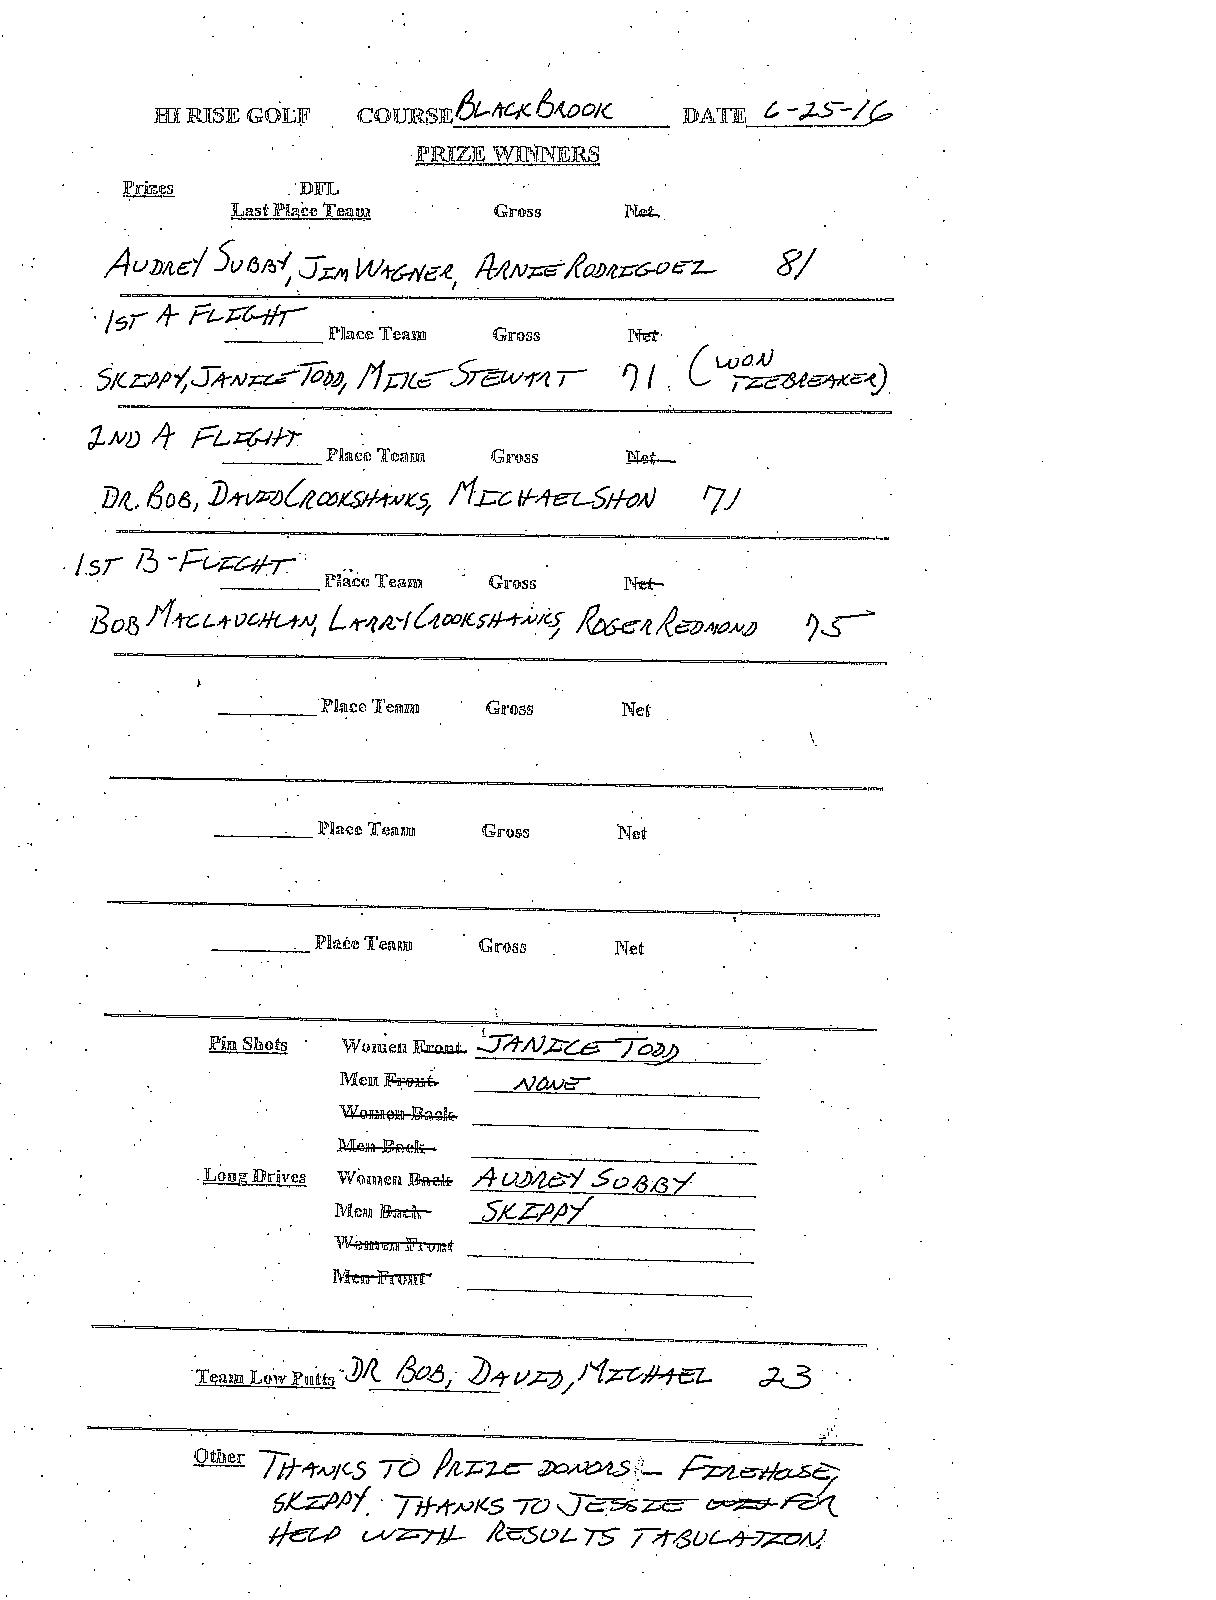 HI RISE GOLF COURSE BLACK BROOK DATE 6-25-16
PRIZE WINNERS
Prizes DFL
Last Place Team Gross Net
AUDREY SUBBY, JIM WAGNER, ARNIE RODRIGUEZ 81
1ST A FLIGHT Place Team Gross Net
SKIPPY, JANICE TODD, MIKE STEWART 71 (WON
TIEBREAKER)
2ND A FLIGHT Place Team Gross Net
DR. BOB, DAVID CROOKSHANKS, MICHAEL SHON 71
1ST B-FLIGHT Place Team Gross Net
BOB MACLAUGHLAN, LARRY CROOKSHANKS, ROGER REDMOND 75
Place Team Gross Net
Place Team Gross Net
Place Team Gross Net
Pin Shots Women Front JANICE TODD
Men Front NONE
Women Back
Men Back
Long Drives Women Back AUDREY SUBBY
Men Back SKIPPY
Women Front
Men Front
Team Low Putts DR BOB, DAVID, MICHAEL 23
Other THANKS TO PRIZE DONORS - FIREHOUSE,
SKIPPY. THANKS TO JESSIE FOR
HELP WITH RESULTS TABULATION.